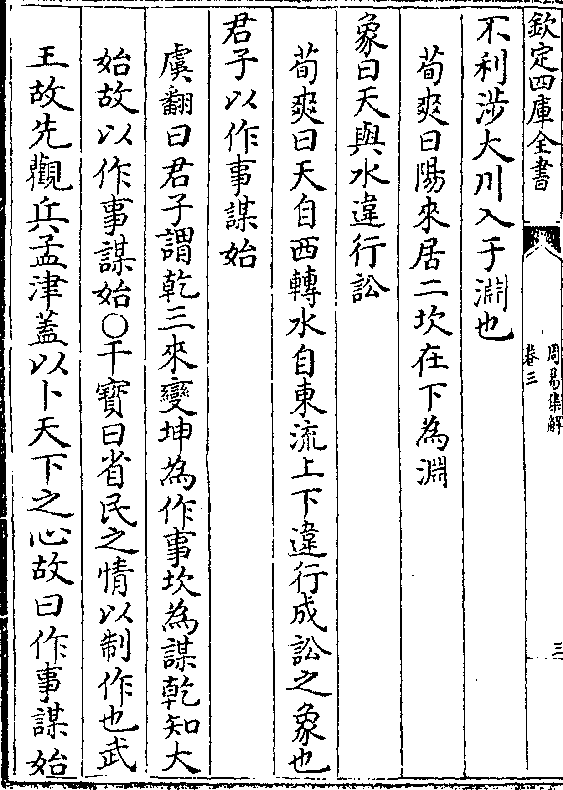 欽定四庫全書
周易集解
卷三
三
不利涉大川入于淵也
荀爽曰陽來居二坎在下為淵
象曰天與水違行訟
荀爽曰天自西轉水自東流上下違行成訟之象也
君子以作事謀始
虞翻曰君子謂乾三來變坤為作事坎為謀乾知大
始故以作事謀始〇干寶曰省民之情以制作也武
王故先觀兵孟津蓋以卜天下之心故曰作事謀始